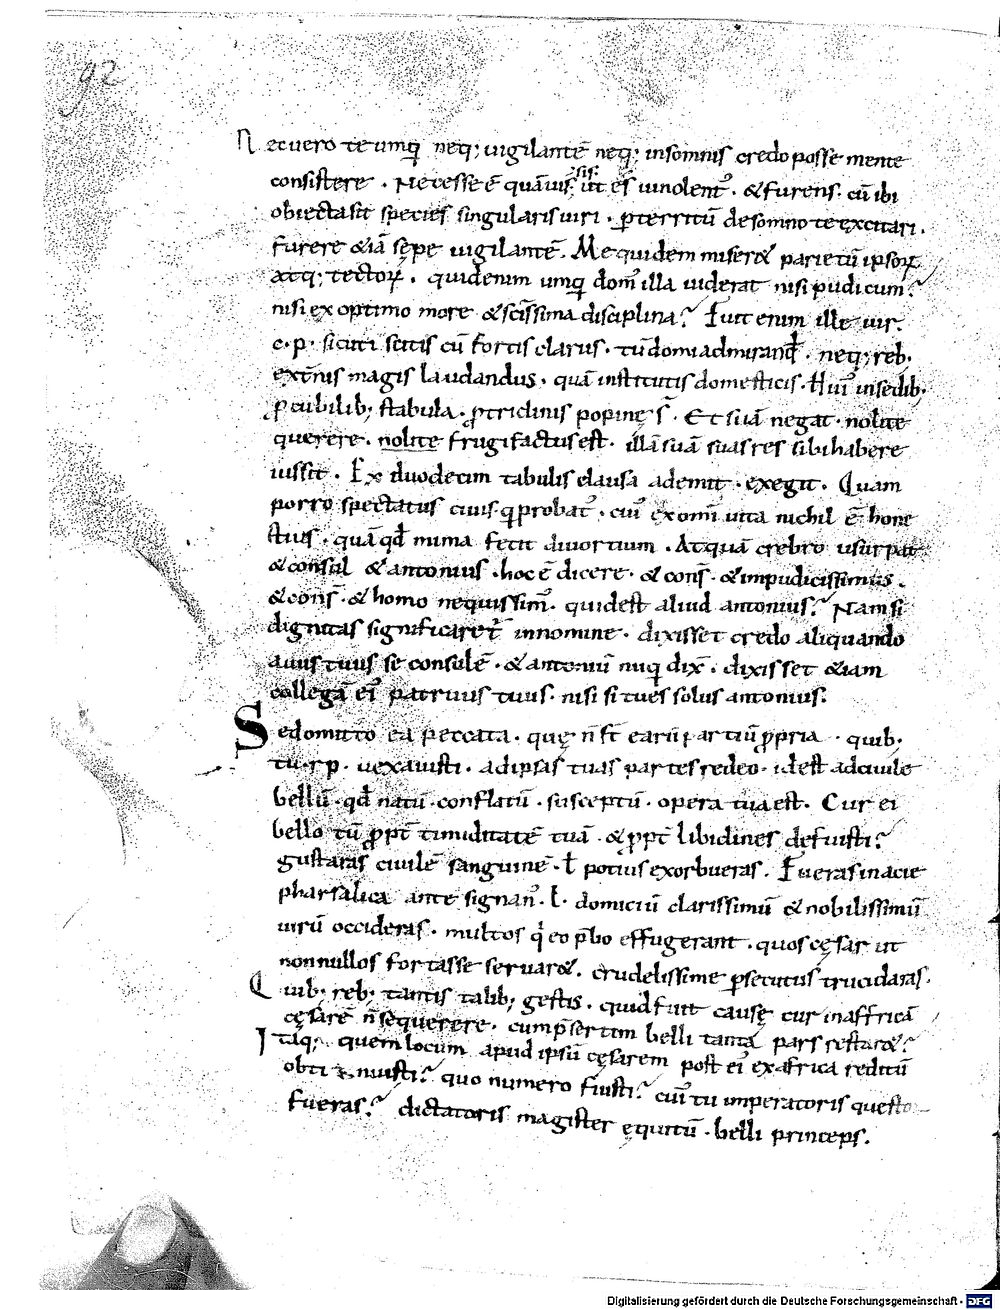 92
Nec vero te umq̄ neq; vigilantē neq; insomnis credo posse mente
consistere . Necesse ē quāuis sis. ut es uinolent᾽ . & furens . cū ibi
obiecta sit species singularis uiri . ꝑterritū de somno te excitari .
furere &iā sępe uigilantē . Me quidem miser& parietū ipsoꝝ
atq; tectoꝝ . quid enim umq̄ dom᾽ illa uiderat nisi pudicum?
nisi ex optimo more & sc̄issima disciplina? Fuit enim ille uir.
c. p. sicuti scitis cū foris clarus . tū domi admirand᾽ . neq; reb.
ext̄nis magis laudandus . quā institutis domesticis . Hui᾽ in sedib.
ꝓ cubilib; stabula . ꝓ tricliniis popinę s̄ . Et suā negat . nolite
querere . nolite frugi factus est . illā suā suas res sibi habere
iussit . Ex duodecim tabulis clausa ademit . exegit . Quam
porro spectatus ciuis . q̄ probat᾽ . cui᾽ ex omi uita nichil ē hone
stius . quā qd̄ mima fecit diuortium . At quā crebro usurpat
& consul & antonius . hoc ē dicere . & cons̄ . & impudicissimus .
& cons̄ . & homo nequissim᾽ . quid est aliud antonius? Nam si
dignitas significaret᾽ in nomine . dixisset credo aliquando
auus tuus se consulē . & antoniū nūq̄ dix̄ . dixisset &iam
collega ei᾽ patruus tuus . nisi si tu es solus antonius.
Sed omitto ea peccata . quę n̄ s̄t earū partiū ꝓpria . quib.
tu . r p . uexauisti . ad ipsas tuas partes redeo . id est ad ciuile
bellū . qd̄ natū . conflatū . susceptū . opera tua est . Cur ei
bello tū ꝓpt̄ timiditatē tuā . & ꝓpt̄ libidines defuisti?
gustaras ciuilē sanguinē . ł potius exorbueras . Fueras in acie
pharsalica ante signan᾽ . L . domiciū clarissimū & nobilissimū
uirū occideras . multos q̇ eo p̄lio effugerant . quos cęsar ut
nonnullos fortasse seruar& . crudelissime ꝑsecutus trucidaras .
Quib; reb; tantis talib; gestis . quid fuit causę cur in affricā
cęsarē n̄ sequerere . cum p̄sertim belli tanta pars restar&?
Itaq; quem locum apud ipsū cęsarem post ei᾽ ex africa reditū
obtinuisti? quo numero fuisti? cui᾽ tu imperatoris questo
fueras? dictatoris magister equitū . belli princeps .
Digitalisierung gefördert durch die Deutsche Forschungsgemeinschaft - DFG